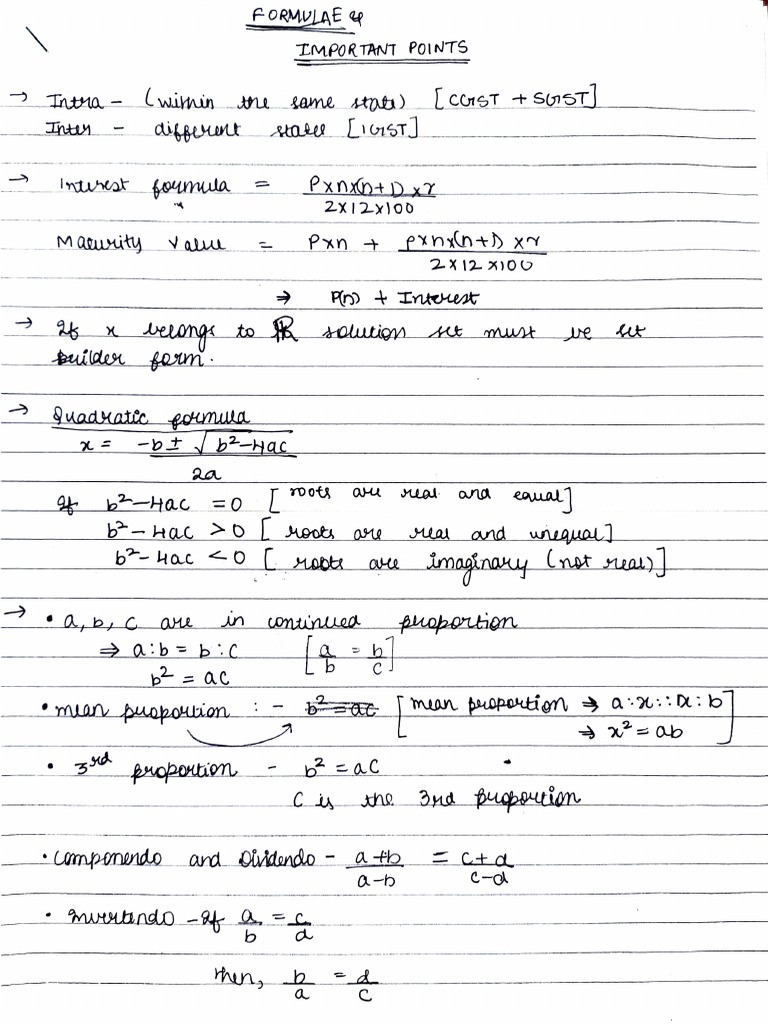 FORMULAE &
IMPORTANT POINTS
→ Intra - (within the same state) [CGST + SGST]
Inter - different states [IGST]
→ Interest formula = P×n×(n+1)×r / 2×12×100
Maturity Value = P×n + P×n×(n+1)×r / 2×12×100
⇒ P(n) + Interest
→ If x belongs to ℝ solution set must be set
builder form.
→ Quadratic formula
x = -b ± √b²-4ac / 2a
If b²-4ac = 0 [roots are real and equal]
b²-4ac > 0 [roots are real and unequal]
b²-4ac < 0 [roots are imaginary (not real)]
→ • a, b, c are in continued proportion
⇒ a:b = b:c [a/b = b/c]
b² = ac
• mean proportion :- b² = ac [mean proportion ⇒ a:x::x:b
⇒ x² = ab]
• 3rd proportion - b² = ac
C is the 3rd proportion
• Componendo and Dividendo - a+b/a-b = c+d/c-d
• Invertendo - If a/b = c/d
then, b/a = d/c